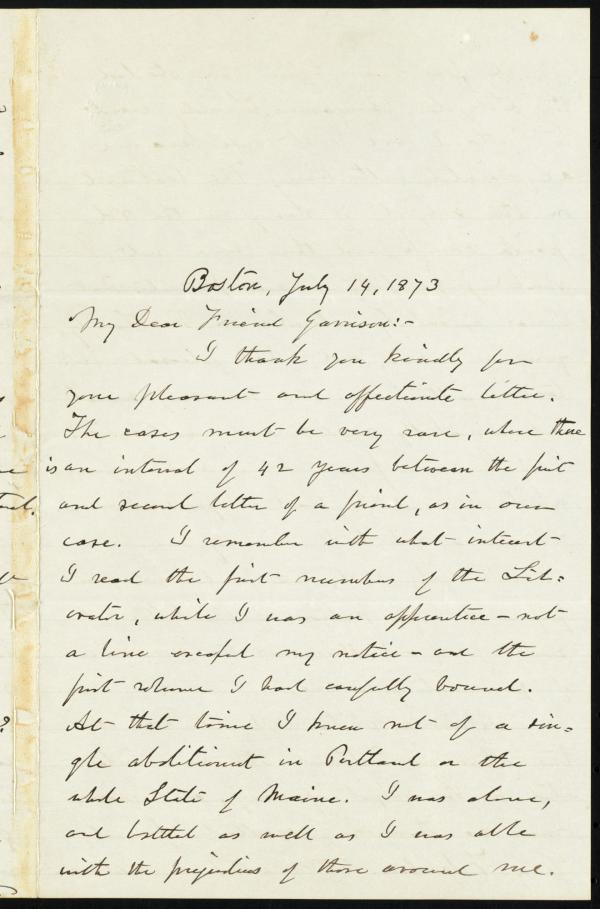 Boston, July 14, 1873
My Dear Friend Garrison:-
I thank you kindly for
your pleasant and affectionate letter.
The cases must be very rare, where there
is an interval of 42 years between the first
and second letter of a friend, as in our
case. I remember with what interest
I read the first numbers of the Lib=
erator, while I was an apprentice - not
a line escaped my notice - and the
first volume I had carefully bound.
At that time I knew not of a sin=
gle abolitionist in Portland or the
whole State of Maine. I was alone,
and battled as well as I was able
with the prejudices of those around me.